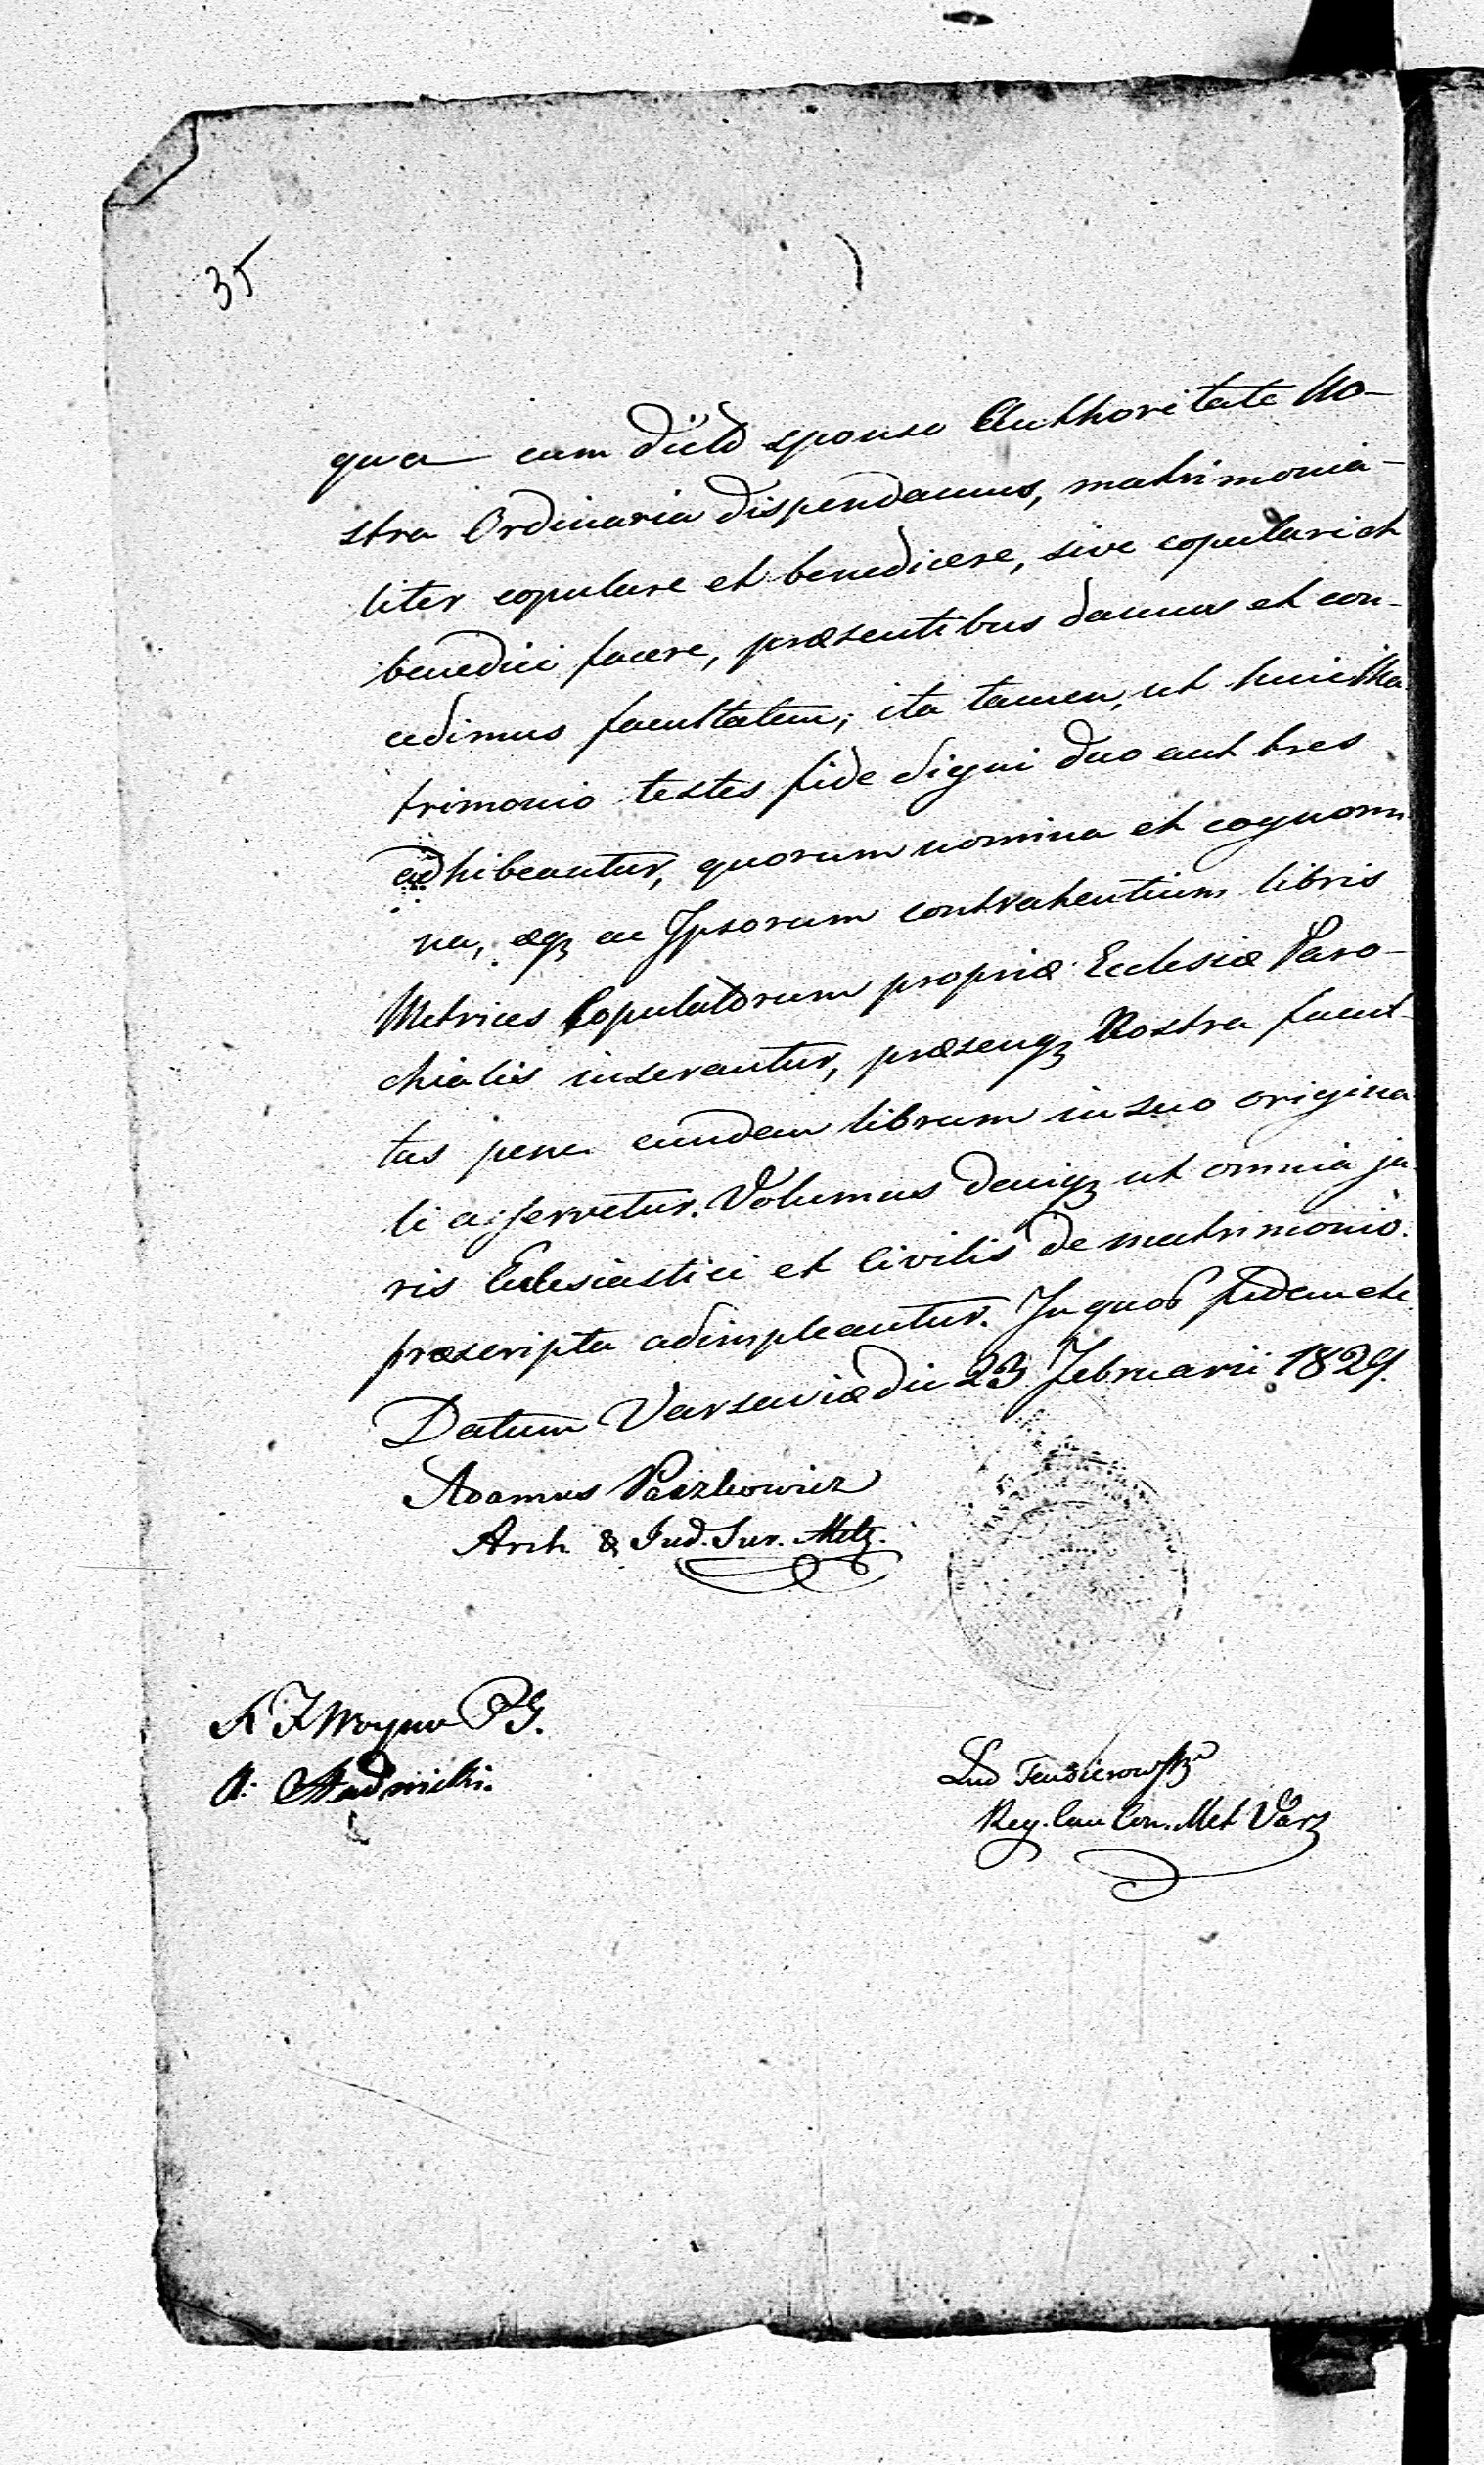 35
qua cum dicto sponso Authoritate No-
stra Ordinaria dispensamus, matrimonia-
liter copulare et benedicere, sive copulari et
benedici facere, præsentibus damus et con-
cedimus facultatem; ita tamen, ut huic Ma
trimonio testes fide digni duo aut tres
adhibeantur, quorum nomina et cognomi
na, æqz ac Ipsorum contrahentium libris
Metrices Copulatorum propriæ Ecclesiæ Paro-
chialis inserantur, præsensqz Nostra facul-
tas penes eundem librum in suo origina
li asservetur. Volumus deniqz ut omnia ju
ris Ecclesiastici et Civilis de matrimonio
præscripta adimpleantur. In quor fidem etc
Datum Varsaviæ die 23 Februarii 1829.
Adamus Paszkowicz
Arch. & Jud. Sur. Metr.
X J Woyno PG.
Lud
Reg. Can Con. Met Varz